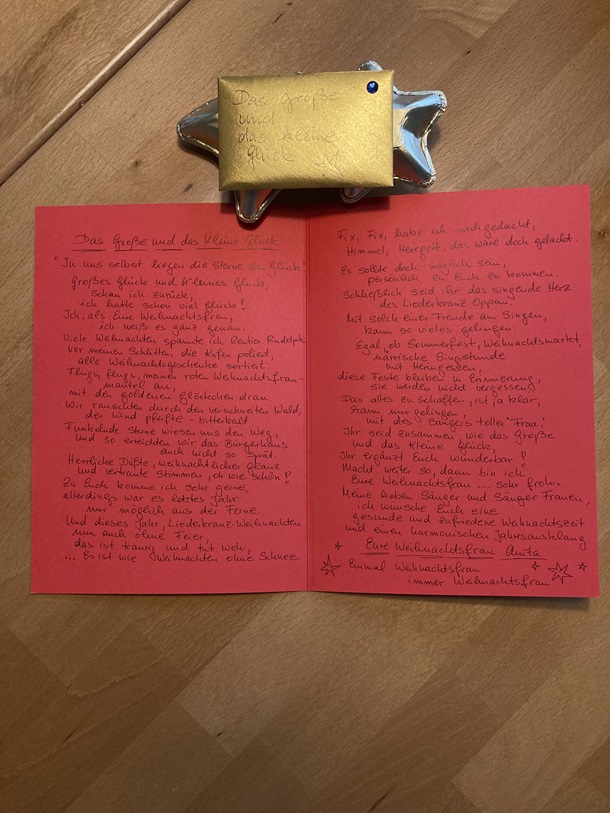 Das Große
und
das kleine
Glück
Das Große und das Kleine Glück
"In uns selbst liegen die Sterne des Glücks"
Großes Glück und kleines Glück,
schau ich zurück,
ich hatte schon viel Glück!
Ich, als Eure Weihnachtsfrau,
ich weiß es ganz genau.
Viele Weihnachten spannte ich Rentier Rudolph
vor meinen Schlitten, die Kufen poliert,
alle Weihnachtsgeschenke sortiert.
Flugs, flugs, meinen roten Weihnachtsfrau-
mantel an,
mit den goldenen Glöckchen dran.
Wir rauschten durch den verschneiten Wald,
der Wind pfeifte - bitterkalt
Funkelnde Sterne wiesen uns den Weg,
und so erreichten wir das Bürgerhaus
auch nicht so spät.
Herrliche Düfte, weihnachtlicher Glanz
und vertraute Stimmen, oh wie schön!
Zu Euch komme ich sehr gerne,
allerdings war es letztes Jahr
nur möglich aus der Ferne.
Und dieses Jahr, Liederkranz-Weihnachten
nun auch ohne Feier,
das ist traurig und tut weh,
... Es ist wie Weihnachten ohne Schnee.
Fix, Fix, habe ich nachgedacht,
Himmel, Herrgott, das wäre doch gelacht.
Es sollte doch möglich sein,
persönlich zu Euch zu kommen.
Schließlich seid ihr das singende Herz
des Liederkranz Oppau.
Mit solch einer Freude am Singen,
kann so vieles gelingen.
Egal, ob Sommerfest, Weihnachtsmarkt,
närrische Singstunde
mit Heringessen,
diese Feste bleiben in Erinnerung,
sie werden nicht vergessen!
Das alles zu schaffen, ist ja klar,
kann nur gelingen,
mit des Sängers toller Fraa!
Ihr seid zusammen, wie das Große
und das Kleine Glück,
Ihr ergänzt Euch wunderbar!
Macht weiter so, dann bin ich
Eure Weihnachtsfrau ... sehr froh.
Meine lieben Sänger und Sänger Frauen,
ich wünsche Euch eine
gesunde und zufriedene Weihnachtszeit
und einen harmonischen Jahresausklang.
Eure Weihnachtsfrau Anita
Einmal Weihnachtsfrau
immer Weihnachtsfrau